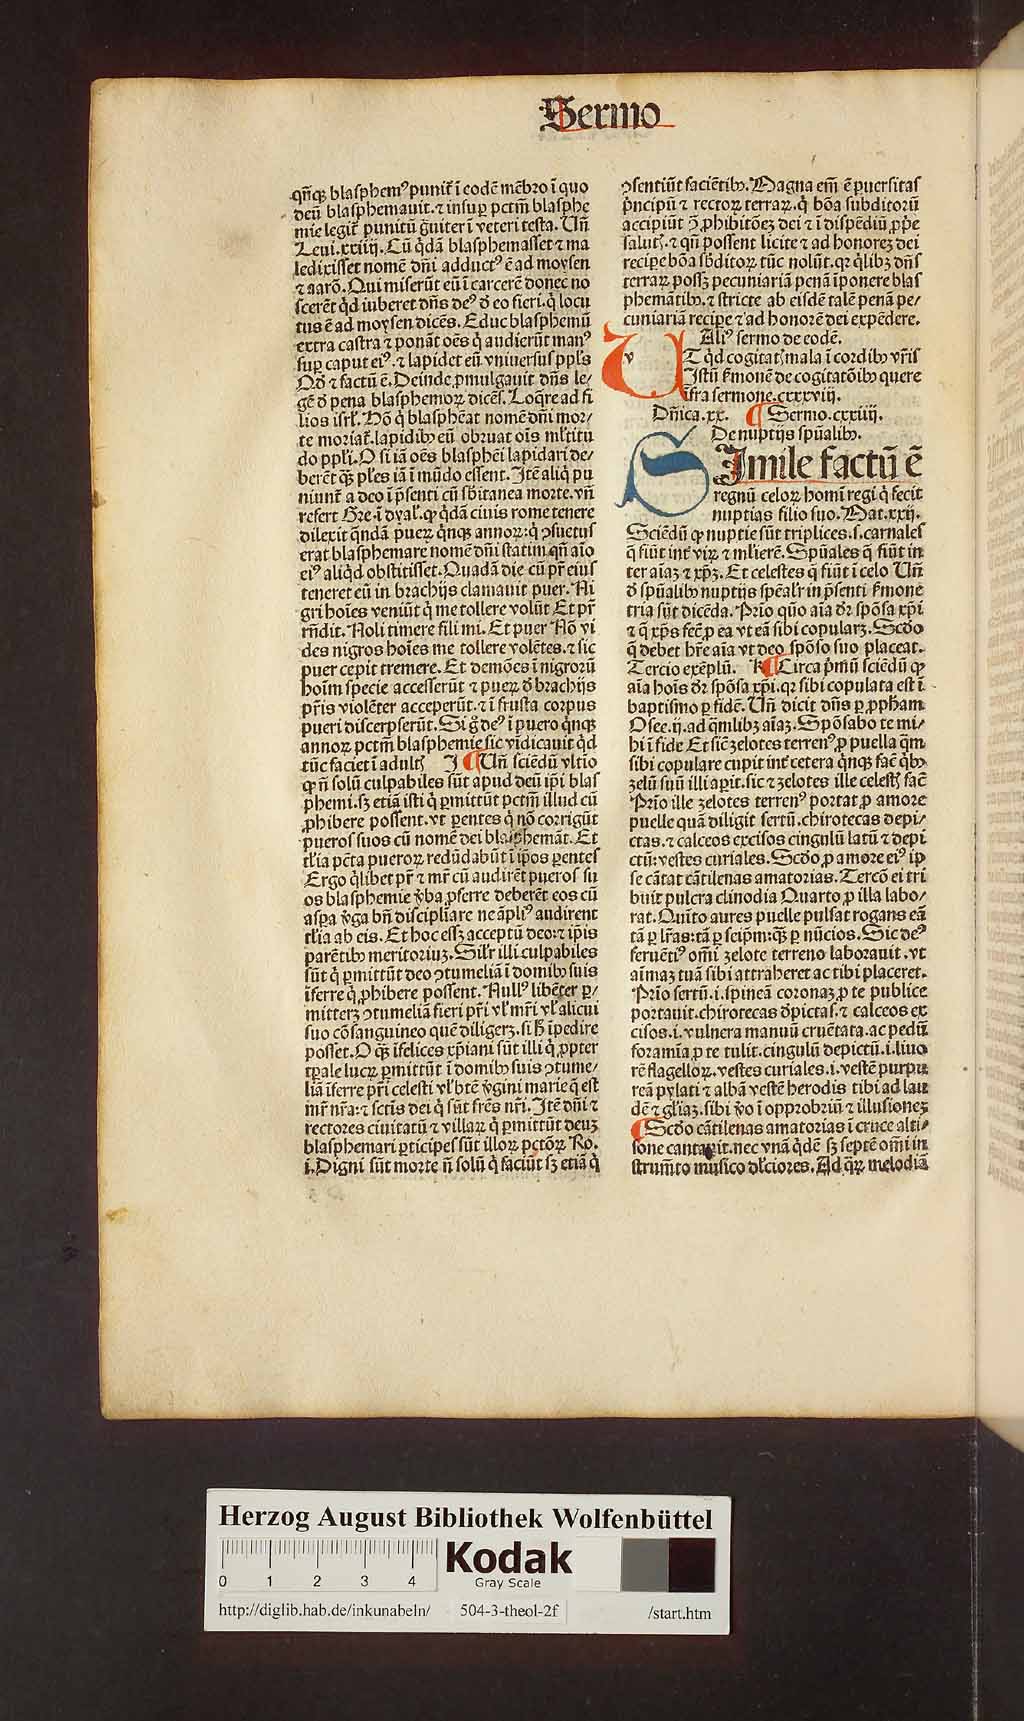 Sermo
qñqꝫ blasphemꝰ puniṫ ī eodē mēbro ī quo
deū blasphemauit. ⁊ insuꝑ pctm̄ blasphe
mie legiť punitū ġuiter ī veteri testa. Uñ
Leui. xxiiij. Cū q̇dā blasphemasset ⁊ ma
ledixisset nomē dñi adductꝰ ē ad moysen
⁊ aarō. Qui miserūt eū ī carcerē donec no
scerēt qḋ iuberet dñs deꝰ ḋ eo fieri. q̇ locu
tus ē ad moysen dicēs. Educ blasphemū
extra castra ⁊ ponāt oēs q̇ audierūt manꝰ
suꝑ caput eiꝰ. ⁊ lapidet eū vniuersus ppl̄s
Qḋ ⁊ factū ē. Deinde ꝓmulgauit dñs le/
gē ḋ pena blasphemoꝝ dicēs. Loq̄re ad fi
lios isrl̄. Hō q̇ blasphēat nomē dñi mor/
te moriať. lapidibꝰ eū obruat oīs ml̄titu
do ppl̄i. O si iā oēs blasphēi lapidari de/
berēt q̄ꝫ pl̄es iā ī mūdo essent. Itē aliq̇ pu
niunť a deo ī p̄senti cū sb̄itanea morte. vñ
refert Gre. ī dyal̓. ꝙ q̇dā ciuis rome tenere
dilexit q̄ndā pueꝝ q̇nqꝫ annoꝝ: q̇ ꝯsuetus
erat blasphemare nomē dñi statim qñ aīo
eiꝰ aliqḋ obstitisset. Quadā die cū pr̄ eius
teneret eū in brachijs clamauit puer. Ni
gri hoīes veniūt q̇ me tollere volūt Et pr̄
rn̄dit. Noli timere fili mi. Et puer Nō vi
des nigros hoīes me tollere volētes. ⁊ sic
puer cepit tremere. Et demōes ī nigroꝝ
hoīm specie accesserūt ⁊ pueꝝ ḋ brachijs
pr̄is violēter acceperūt. ⁊ ī frusta corpus
pueri discerpserūt. Si ġ deꝰ ī puero q̇nqꝫ
annoꝝ pctm̄ blasphemie sic vīdicauit qḋ
tūc faciet ī adultꝭ I ¶ Uñ sciendū vltio
ꝙ ñ solū culpabiles sūt apud deū ip̄i blas
phemi. sꝫ etiā isti q̇ ꝑmittūt pctm̄ illud cū
ꝓhibere possent. vt ꝑentes q̇ nō corrigūt
pueros suos cū nomē dei blasphemāt. Et
tl̓ia pctā pueroꝝ redūdabūt ī ip̄os ꝑentes
Ergo q̇libet pr̄ ⁊ mr̄ cū audirēt pueros su
os blasphemie v̇ba ꝓferre deberēt eos cū
aspa v̇ga bñ discipliāre ne āpliꝰ audirent
tl̓ia ab eis. Et hoc essꝫ acceptū deo: ⁊ ip̄is
parētibꝰ meritoriuꝫ. Sil̓r illi culpabiles
sūt q̇ ꝑmittūt deo ꝯtumeliā ī domibꝰ suis
īferre q̇ ꝓhibere possent. Nullꝰ libēter ꝑ/
mitterꝫ ꝯtumeliā fieri pr̄i vl̓ mr̄i vl̓ alicui
suo cōsanguineo quē diligerꝫ. si h̄ īpedire
posset. O q̄ꝫ īfelices xp̄iani sūt illi q̇ ꝓpter
tꝑale lucꝝ ꝑmittūt ī domibꝰ suis ꝯtume/
liā īferre pr̄i celesti vl̓ btē v̇gini marie q̄ est
mr̄ nr̄a: ⁊ sctis dei q̇ sūt fr̄es nr̄i. Itē dñi ⁊
rectores ciuitatū ⁊ villaꝝ q̇ ꝑmittūt deuꝫ
blasphemari ꝑticipes sūt illoꝝ pctōꝝ Ro.
i. Digni sūt morte ñ solū q̇ faciūt sꝫ etiā q̇
ꝯsentiūt faciētibꝰ. Magna em̄ ē ꝑuersitas
p̄ncipū ⁊ rectoꝝ terraꝝ. q̇ bōa subditoꝝ
accipiūt ꝯ̄ ꝓhibitōeꝫ dei ⁊ ī dispēdiū ꝓp̄e
salutꝭ. ⁊ qñ possent licite ⁊ ad honoreꝫ dei
recipe bōa sb̄ditoꝝ tūc nolūt. qꝛ q̇libꝫ dñs
terraꝝ possꝫ pecuniariā penā īponere blas
phemātibꝰ. ⁊ stricte ab eisdē talē penā pe/
cuniariā recipe ⁊ ad honorē dei expēdere.
Aliꝰ sermo de eodē.
UT qḋ cogitatꝭ mala ī cordibꝰ vr̄is
Istū ẜmonē de cogitatōibꝰ quere
īfra sermone. cxxxviij.
Dñica. xx. ¶ Sermo. cxxiiij.
De nuptijs spūalibꝰ.
SImile factū ē
regnū celoꝝ homī regi q̇ fecit
nuptias filio suo. Mat. xxij.
Sciēdū ꝙ nuptie sūt triplices. s. carnales
q̄ fiūt int̓ viꝝ ⁊ ml̓ierē. Spūales q̄ fiūt in
ter aīaꝫ ⁊ xp̄ꝫ. Et celestes q̄ fiūt ī celo Uñ
ḋ spūalibꝰ nuptijs spēal̓r in p̄senti ẜmone
tria sūt dicēda. Prīo quō aīa dr̄ spōsa xp̄i
⁊ q̄ xp̄s fec̄ ꝓ ea vt eā sibi copularꝫ. Scḋo
q̄ debet hr̄e aīa vt deo spōso suo placeat.
Tercio exēplū. K ¶ Circa p̄mū sciēdū ꝙ
aīa hoīs dr̄ spōsa xp̄i. qꝛ sibi copulata est ī
baptismo ꝑ fidē. Uñ dicit dñs ꝑ ꝓpħam
Osee. ij. ad q̄mlibꝫ aīaꝫ. Spōsabo te mi/
hi ī fide Et sic̄ zelotes terrenꝰ ꝓ puella q̄m
sibi copulare cupit int̓ cetera q̇nqꝫ fac̄ q̇bꝰ
zelū suū illi aꝑit. sic ⁊ zelotes ille celestꝭ fac̄
Prīo ille zelotes terrenꝰ portat ꝓ amore
puelle quā diligit sertū. chirotecas depi/
ctas. ⁊ calceos excisos cingulū latū ⁊ depi
ctū: vestes curiales. Scḋo ꝓ amore eiꝰ ip
se cātat cātilenas amatorias. Tercō ei tri
buit pulcra clinodia Quarto ꝓ illa labo/
rat. Quīto aures puelle pulsat rogans eā
tā ꝑ lr̄as: tā ꝑ seip̄m: q̄ꝫ ꝑ nūcios. Sic deꝰ
feruētiꝰ om̄i zelote terreno laborauit. vt
aīmaꝫ tuā sibi attraheret ac tibi placeret.
Prīo sertū. i. spineā coronaꝫ ꝓ te publice
portauit. chirotecas ḋpictas. ⁊ calceos ex
cisos. i. vulnera manuū cruētata. ac pedū
foramīa ꝓ te tulit. cingulū depictū. i. liuo
rē flagelloꝝ. vestes curiales. i. vestē purpu
reā pylati ⁊ albā vestē herodis tibi ad lau
dē ⁊ gl̓iaꝫ. sibi v̇o ī opprobriū ⁊ illusioneꝫ
¶ Scḋo cātilenas amatorias ī cruce alti/
sone cantauit. nec vnā q̇dē sꝫ septē om̄i in
strum̄to musico dl̓ciores. Ad q̄ꝝ melodiā
Herzog August Bibliothek Wolfenbüttel
0 1 2 3 4
Kodak
Gray Scale
http://diglib.hab.de/inkunabeln/ 504-3-theol-2f /start.htm